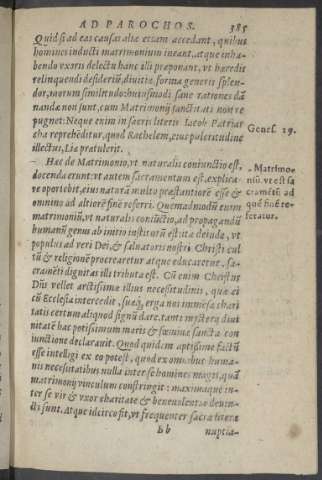 AD PAROCHOS. 385
Quid si ad eas causas aliæ etiam accedant, quibus
homines inducti matrimonium ineant, atque inha-
bendo vxoris delectu hanc illi præponant, vt hæredis
relinquendi desideriũ, diuitiæ formæ generis splen-
dor, morum similitudo: huiusmodi sane rationes dã
nandæ non sunt, cum Matrimonij sanctitati non re
pugnet: Neque enim in sacris literis Iacob Patriar
cha reprehẽditur, quod Rachelem, eius pulcritudine
illectus, Liæ prætulerit.
Genes. 29.
Hæc de Matrimonio, vt naturalis coniunctio est,
docenda erunt: vt autem sacramentum est, explica-
re oportebit, eius naturã multo præstantiorẽ esse &
omnino ad altiorẽ finẽ referri. Quemadmodũ enim
matrimoniũ, vt naturalis coniũctio, ad propagandũ
humanũ genus ab initio institutũ est: ita deinde, vt
populus ad veri Dei, & saluatoris nostri Christi cul
tũ & religionẽ procrearetur atque educaretur, sa-
cramẽti dignitas illi tributa est. Cũ enim Christus
Dñs vellet arctissimæ illius necessitudinis, quæ ei
cũ Ecclesia intercedit, suæq́; erga nos immẽsæ chari
tatis certum aliquod signũ dare, tanti mysterij diui
nitatẽ hac potissimum maris & fœminæ sancta con
iunctione declarauit. Quod quidem aptissime factũ
esse intelligi ex eo potest, quod ex omnibus huma-
nis necessitatibus nulla inter se homines magis, quã
matrimonij vinculum constringit: maximaque in-
ter se vir & vxor charitate & beneuolentia deuin-
cti sunt. Atque idcirco fit, vt frequenter sacræ literæ
Matrimo-
niũ, vt est sa
cramẽtũ, ad
quẽ finẽ re-
feratur.
Bb nuptia-